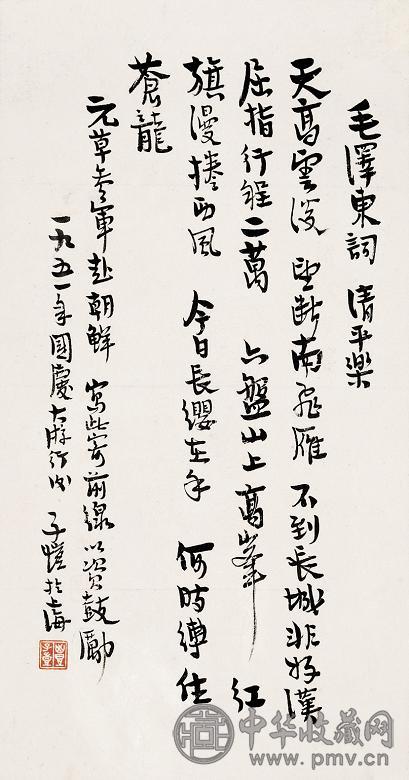 毛澤東詞 清平樂
天高雲淡 望斷南飛雁 不到長城非好漢
屈指行程二萬 六盤山上高峯 紅
旗漫捲西風 今日長纓在手 何時縛住
蒼龍
元草參軍赴朝鮮 寫此寄前線以資鼓勵
一九五一年國慶大游行 子愷於海
中华收藏网
www.pmv.cn